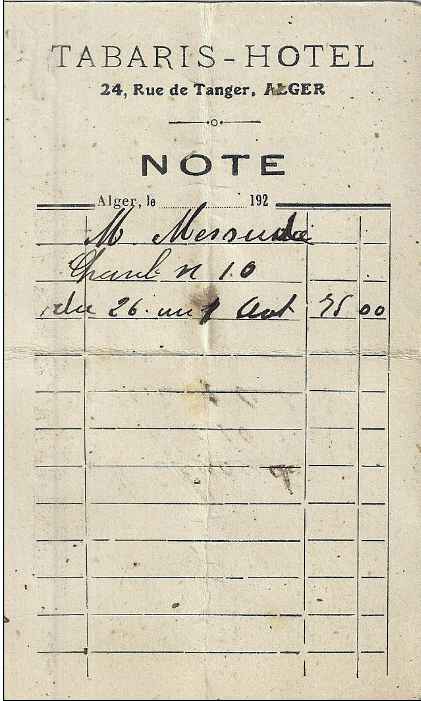 TABARIS-HOTEL
24, Rue de Tanger, ALGER
NOTE
Alger, le 192
M
Chamb n 10
du 26 au 1 Aout 75 00